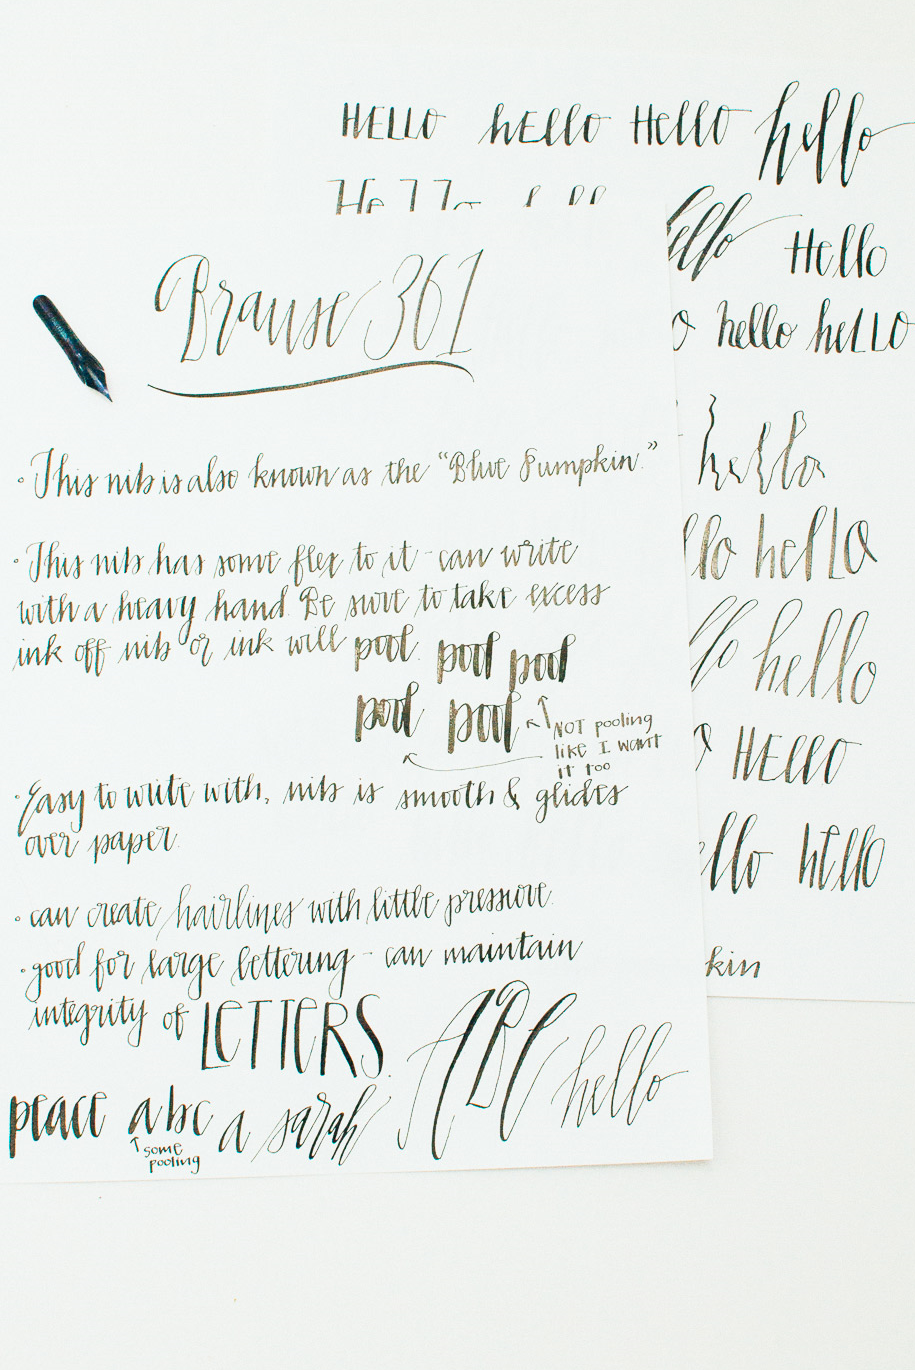 HELLO hello Hello hello
Hello
hello Hello
hello heLLO
hello
hello
hello
HELLO
hello hello
kin
Brause 361
• This nib is also known as the "Blue Pumpkin."
• This nib has some flex to it - can write
with a heavy hand. Be sure to take excess
ink off nib or ink will pool. pool pool
pool pool
NOT pooling
like I want
it too
• Easy to write with, nib is smooth & glides
over paper.
• can create hairlines with little pressure.
• good for large lettering - can maintain
integrity of LETTERS. ABC hello
peace abc a sarah
some
pooling